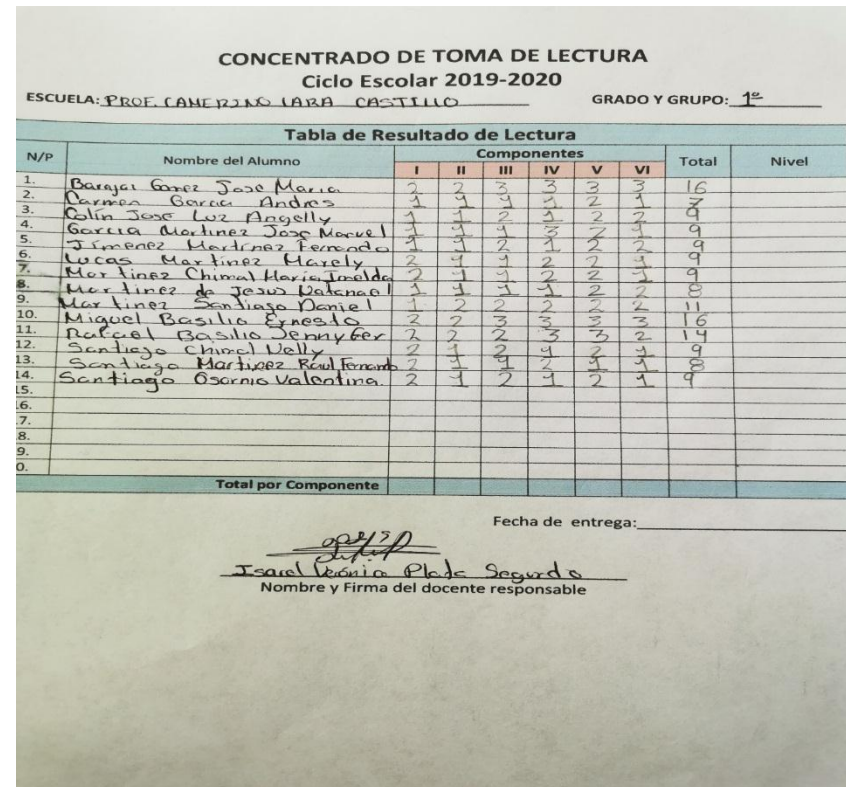 CONCENTRADO DE TOMA DE LECTURA
Ciclo Escolar 2019-2020
ESCUELA: PROF. CAMERINO LARA CASTILLO GRADO Y GRUPO: 1º
Tabla de Resultado de Lectura
N/P Nombre del Alumno Componentes Total Nivel
I II III IV V VI
1. Barajas Gomez Jose Maria 2 2 3 3 3 3 16
2. Carmen Garcia Andres 1 1 1 1 2 1 7
3. Colín Jose Luz Angelly 1 1 2 1 2 2 9
4. Garcia Martinez Jose Manuel 1 1 1 3 2 1 9
5. Jimenez Martinez Fernando 1 1 2 1 2 2 9
6. Lucas Martinez Marely 2 1 1 2 2 1 9
7. Martinez Chimal Maria Imelda 2 1 1 2 2 1 9
8. Martinez de Jesus Natanael 1 1 1 1 2 2 8
9. Martinez Santiago Daniel 1 2 2 2 2 2 11
10. Miguel Basilio Ernesto 2 2 3 3 3 3 16
11. Rafael Basilio Jennyfer 2 2 2 3 3 2 14
12. Santiago Chimal Nelly 2 1 2 1 2 1 9
13. Santiago Martinez Raul Fernando 2 1 1 2 1 1 8
14. Santiago Osornio Valentina. 2 1 2 1 2 1 9
15.
6.
7.
8.
9.
0.
Total por Componente
Fecha de entrega:
Verónica Plata Segundo
Nombre y Firma del docente responsable